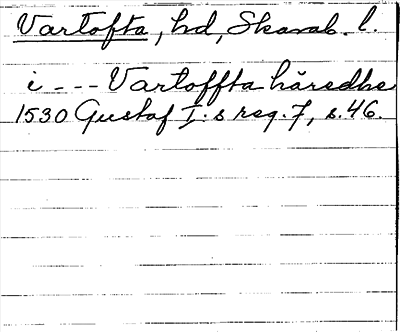 Vartofta, hd, Skarab. l.
i - - - Vartoffta häredhe
1530 Gustaf I:s reg. 7, s. 46.